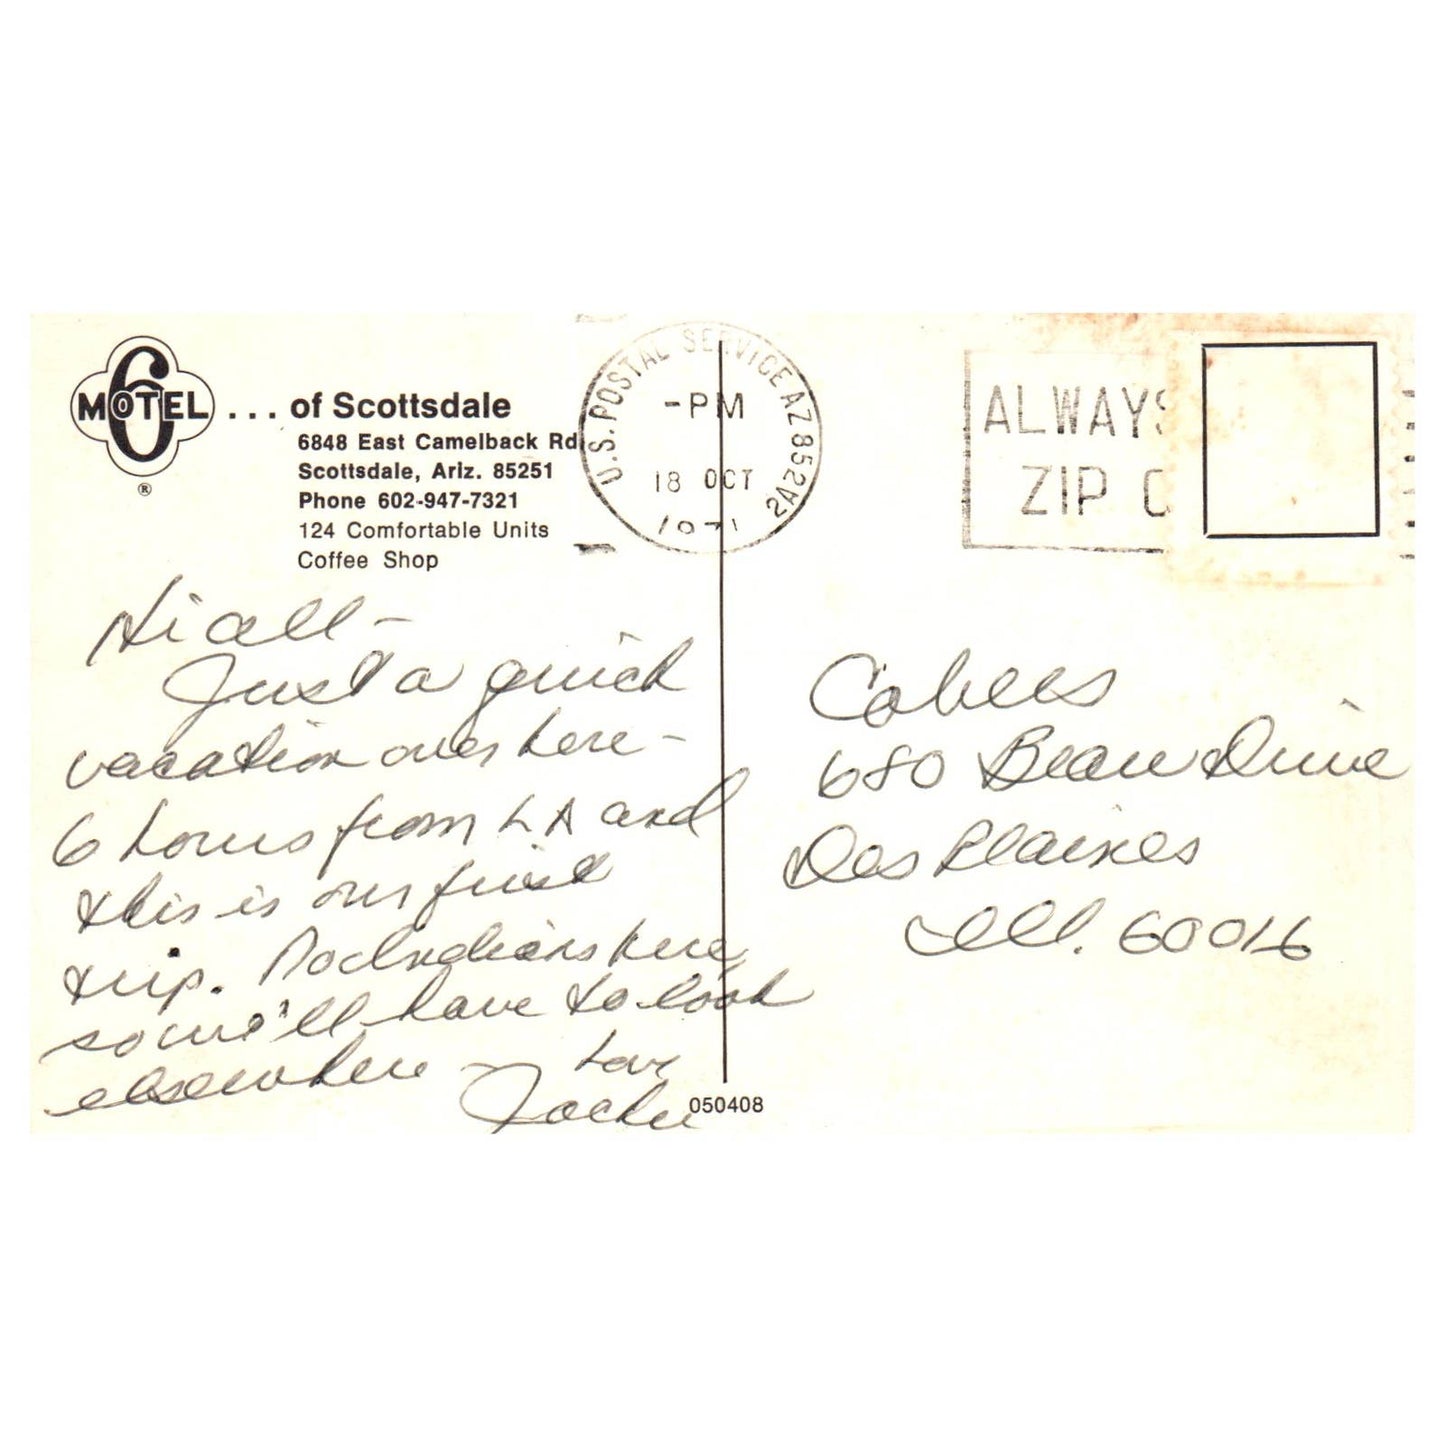 MOTEL 6 ... of Scottsdale
®
6848 East Camelback Rd.
Scottsdale, Ariz. 85251
Phone 602-947-7321
124 Comfortable Units
Coffee Shop
U.S. POSTAL SERVICE AZ 852
-PM
18 OCT
1971
ALWAYS
ZIP C
Hi all -
Just a quick
vacation over here -
6 hours from LA and
this is our first
trip. No Indians here
so we'll have to look
elsewhere -
Love
Jackie
680 Beau Drive
Des Plaines
Ill. 60016
050408